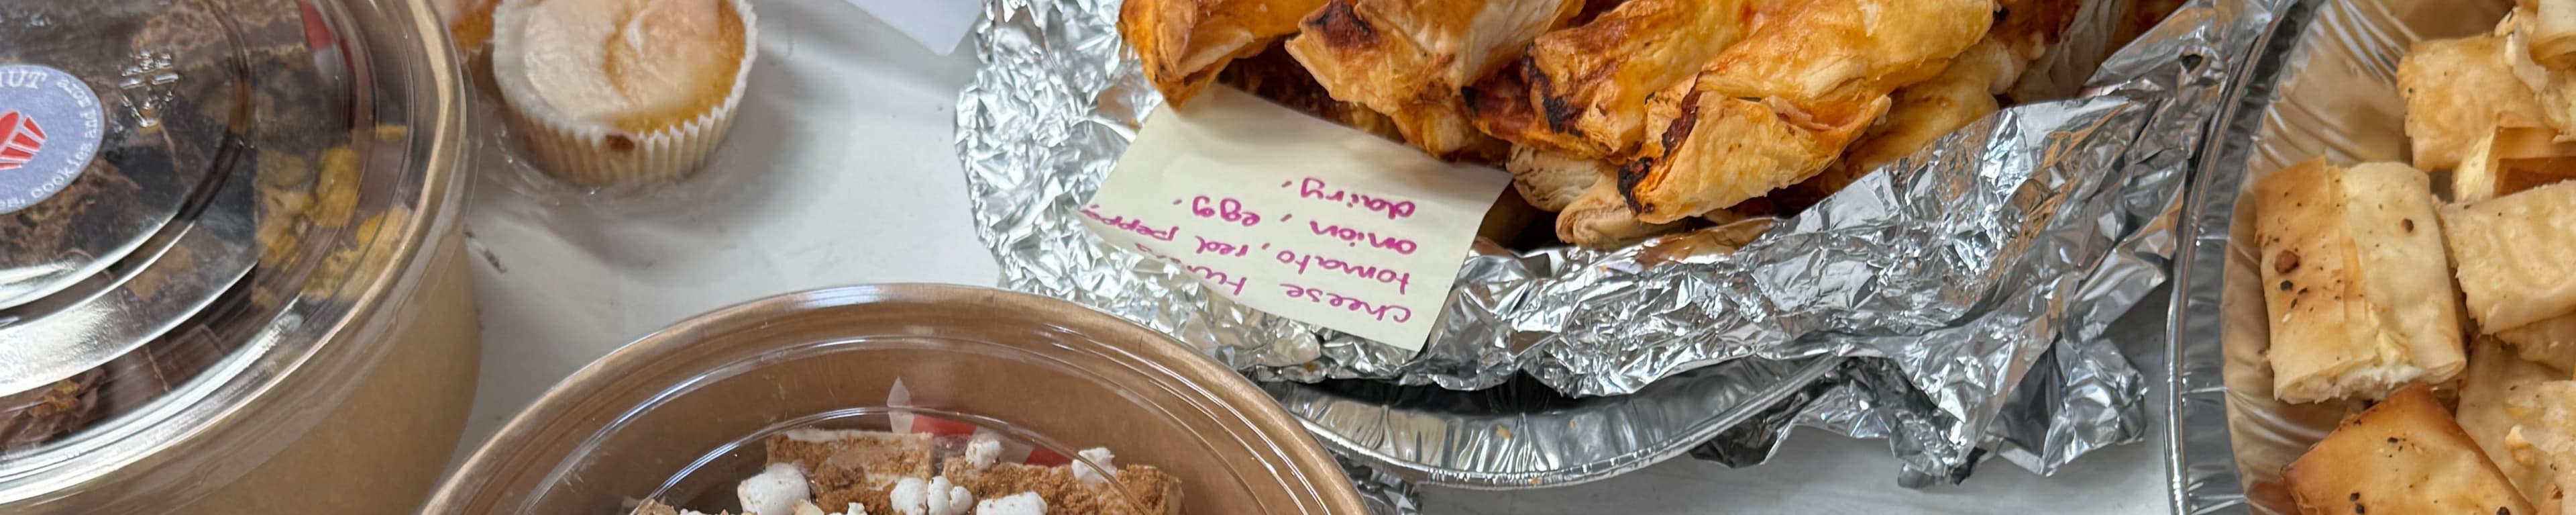 cheese
tomato, red peppe
onion, egg,
dairy,
NUT
cookies and